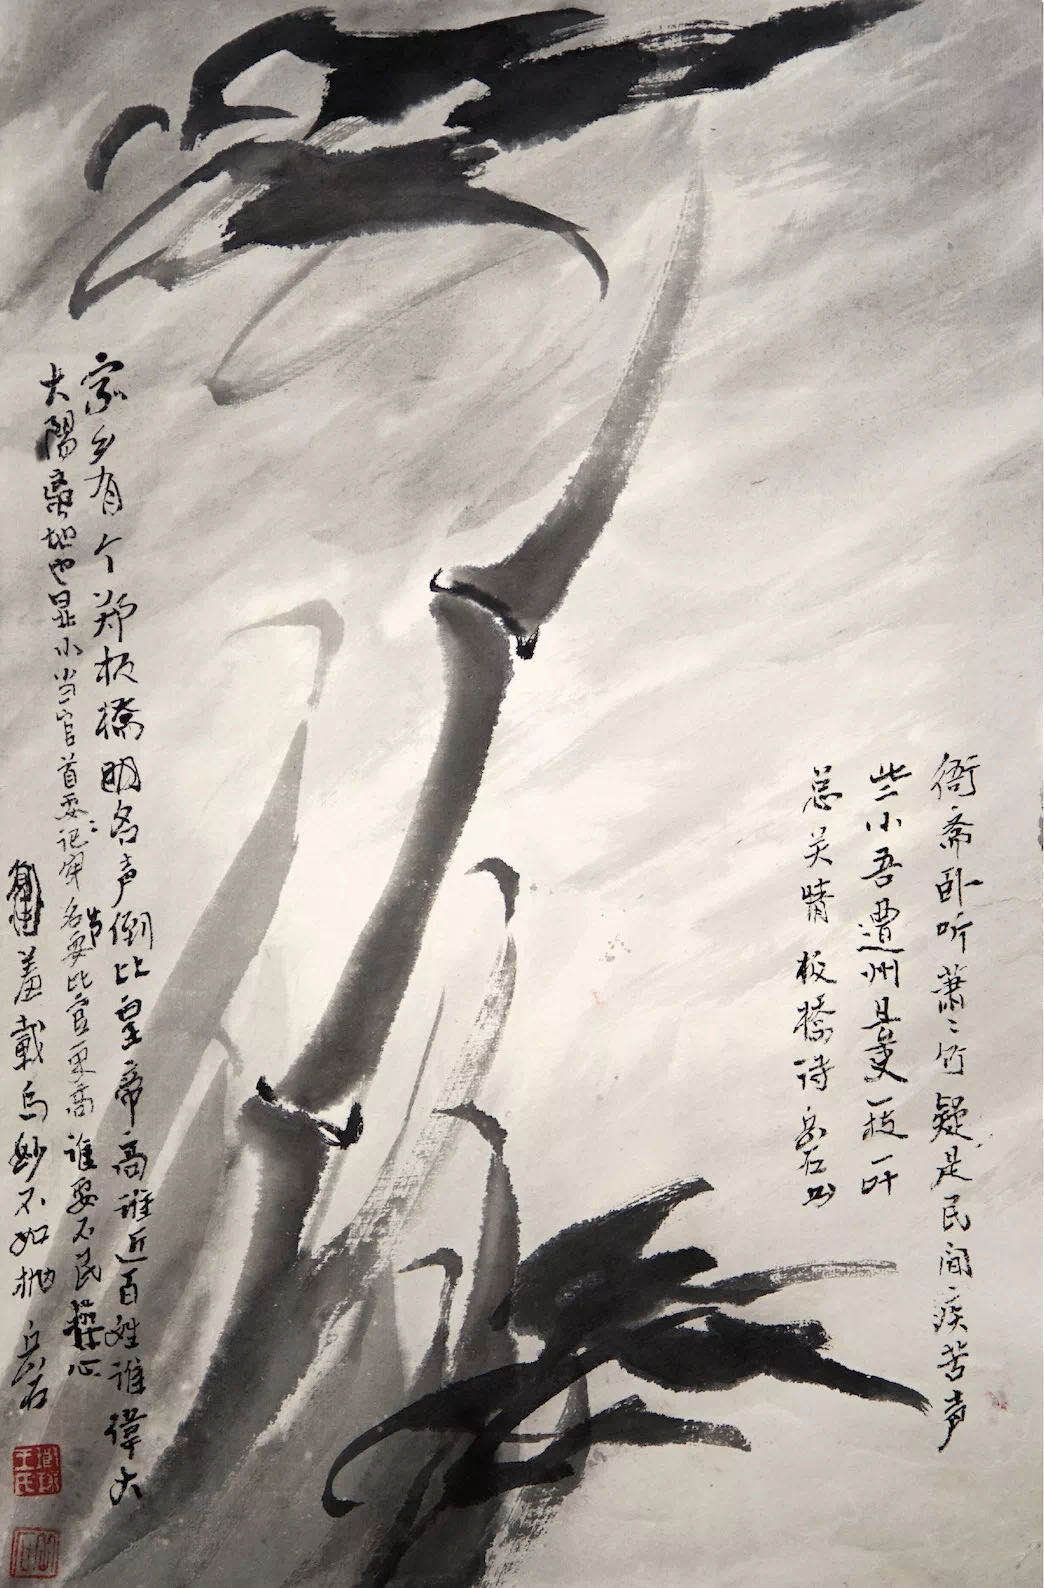 衙斋卧听萧〻竹疑是民间疾苦声
些小吾遭州县吏一枝一叶
总关情 板橋诗 岳石书
家乡有个郑板橋名声倒比皇帝高谁近百姓谁偉大
太陽离地也显小当官首要记牢〻名要比官更高谁要不民心
羞戴乌纱不如抛 岳石
王氏